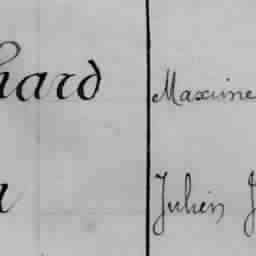 hard Maxime
Julien J